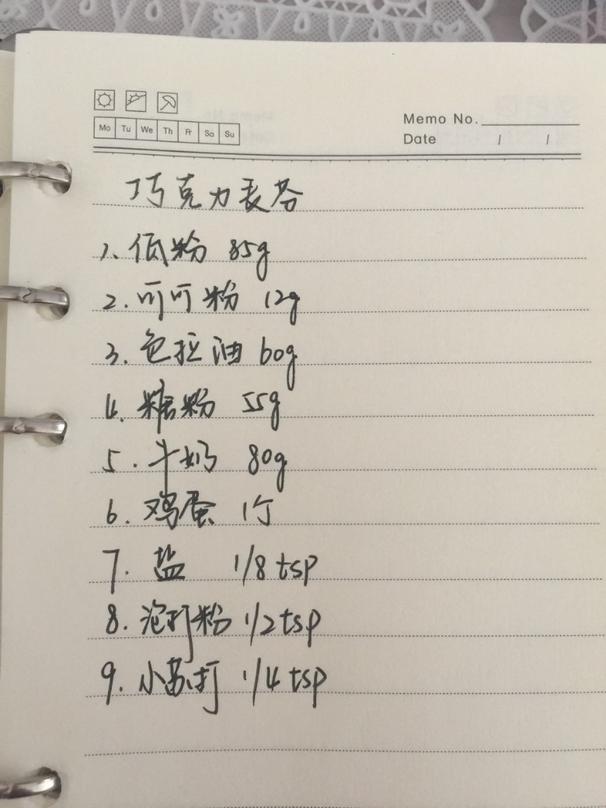 Mo Tu We Th Fr Sa Su
Memo No.
Date / /
巧克力麦芬
1. 低粉 85g
2. 可可粉 12g
3. 色拉油 60g
4. 糖粉 55g
5. 牛奶 80g
6. 鸡蛋 1个
7. 盐 1/8 tsp
8. 泡打粉 1/2 tsp
9. 小苏打 1/4 tsp